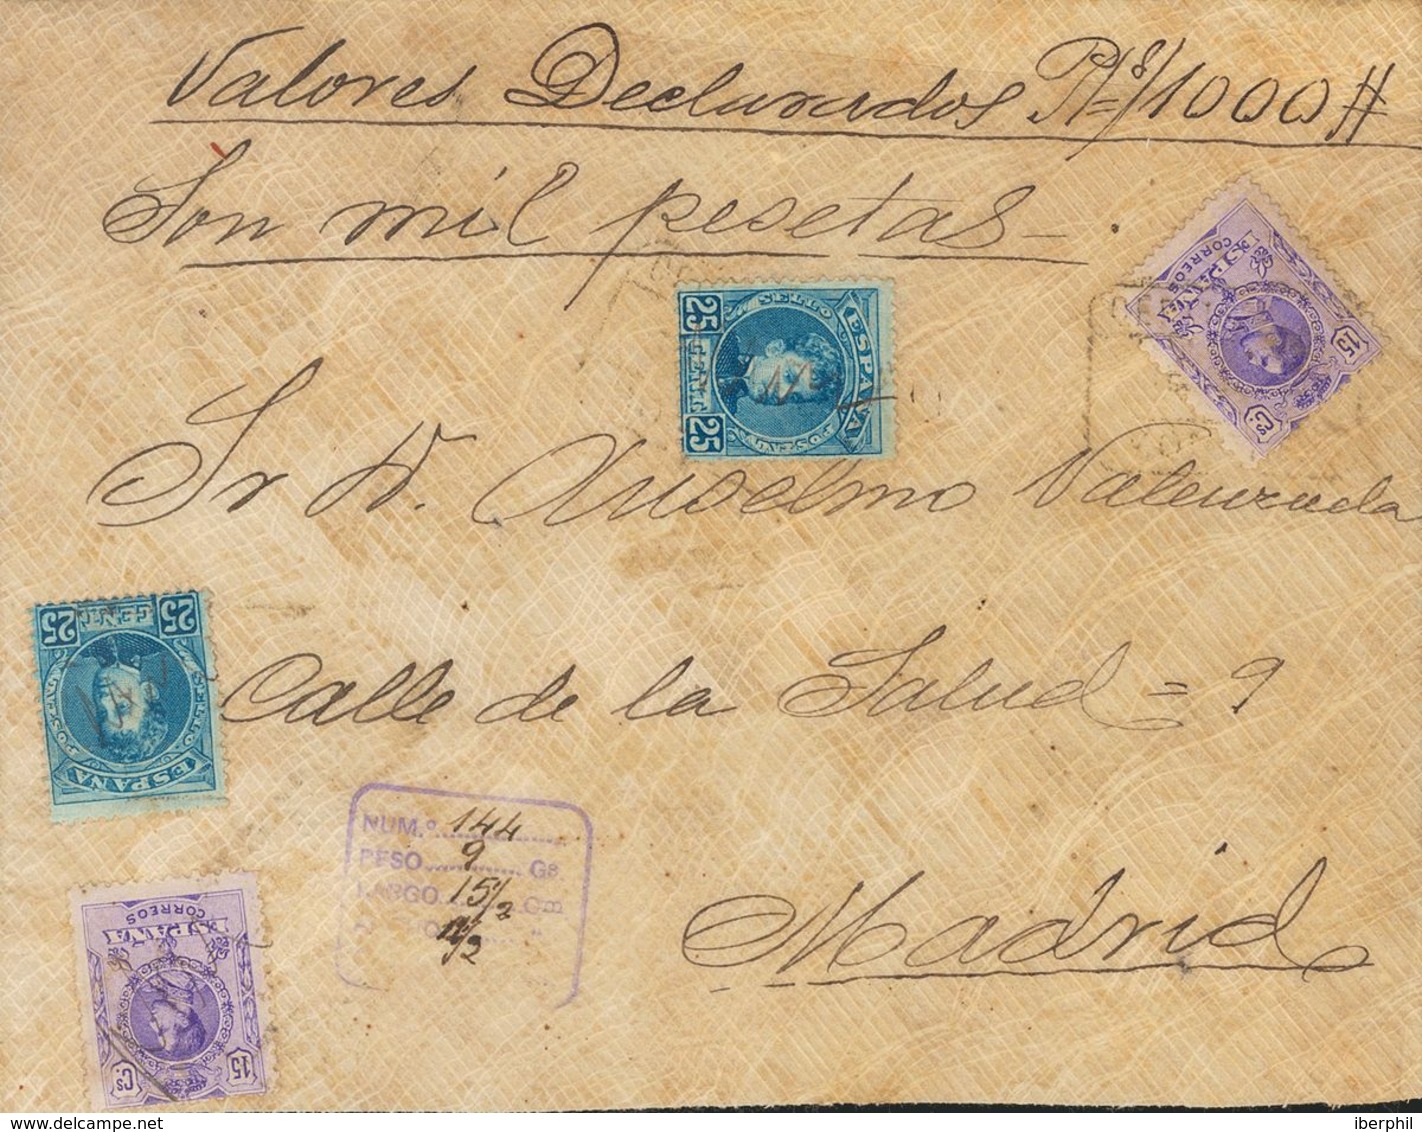 Valores Declarados Pts 1000 #
Son mil pesetas -.
CORREOS
ESPAÑA
15 Cs
25 SELLO ESPAÑA
CENT
25 POSTAL
Sr D. Anselmo Valenzuela
25 CENT 25
POSTAL SELLO
ESPAÑA
Calle de la Salud = 9
NUM.º 144
PESO 9 Gs.
LARGO 15 1/2 Cm.
11 1/2 "
Madrid
CORREOS
ESPAÑA
15 Cs
delcampe.net
iberphil